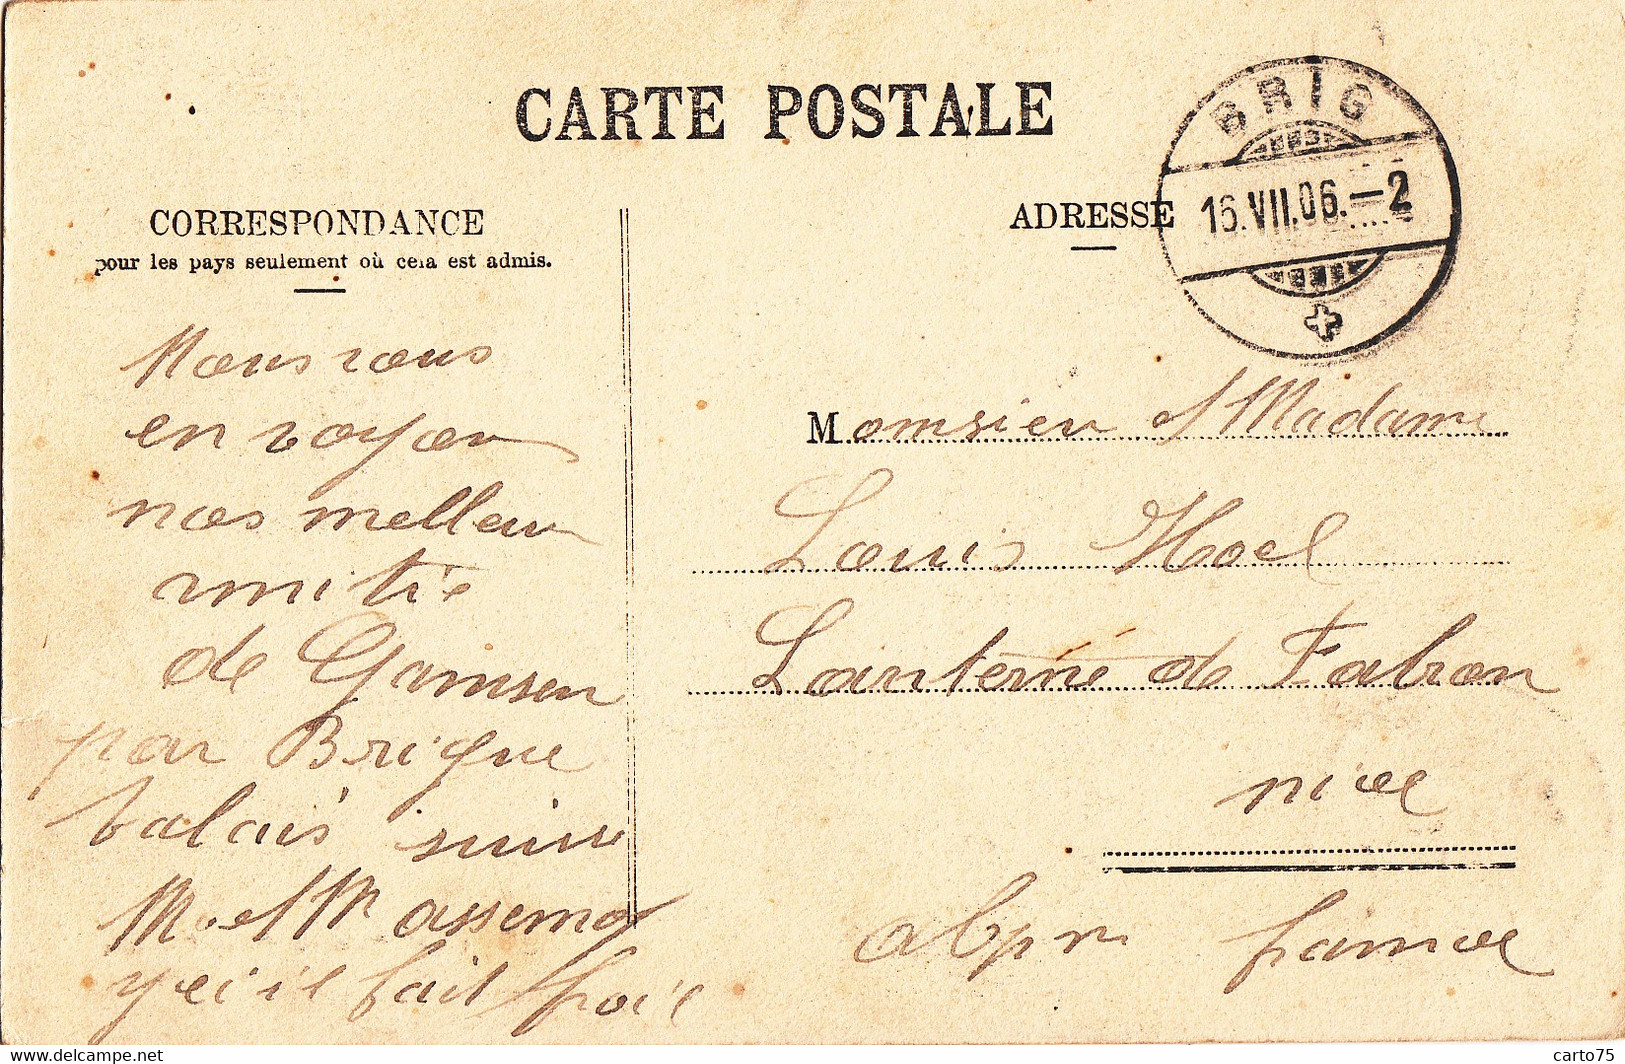 CARTE POSTALE
BRIG
16.VII.06.–2
CORRESPONDANCE
pour les pays seulement où cela est admis.
ADRESSE
Nous vous
en voyon
nos melleur
amitié
de Gamsen
par Brigue
Valais suisse
M. et M assemo
yci il fait froit
Momsieu et Madame
Louis Hoel
Lanterne de Fabron
nice
alp m france
www.delcampe.net
carto75